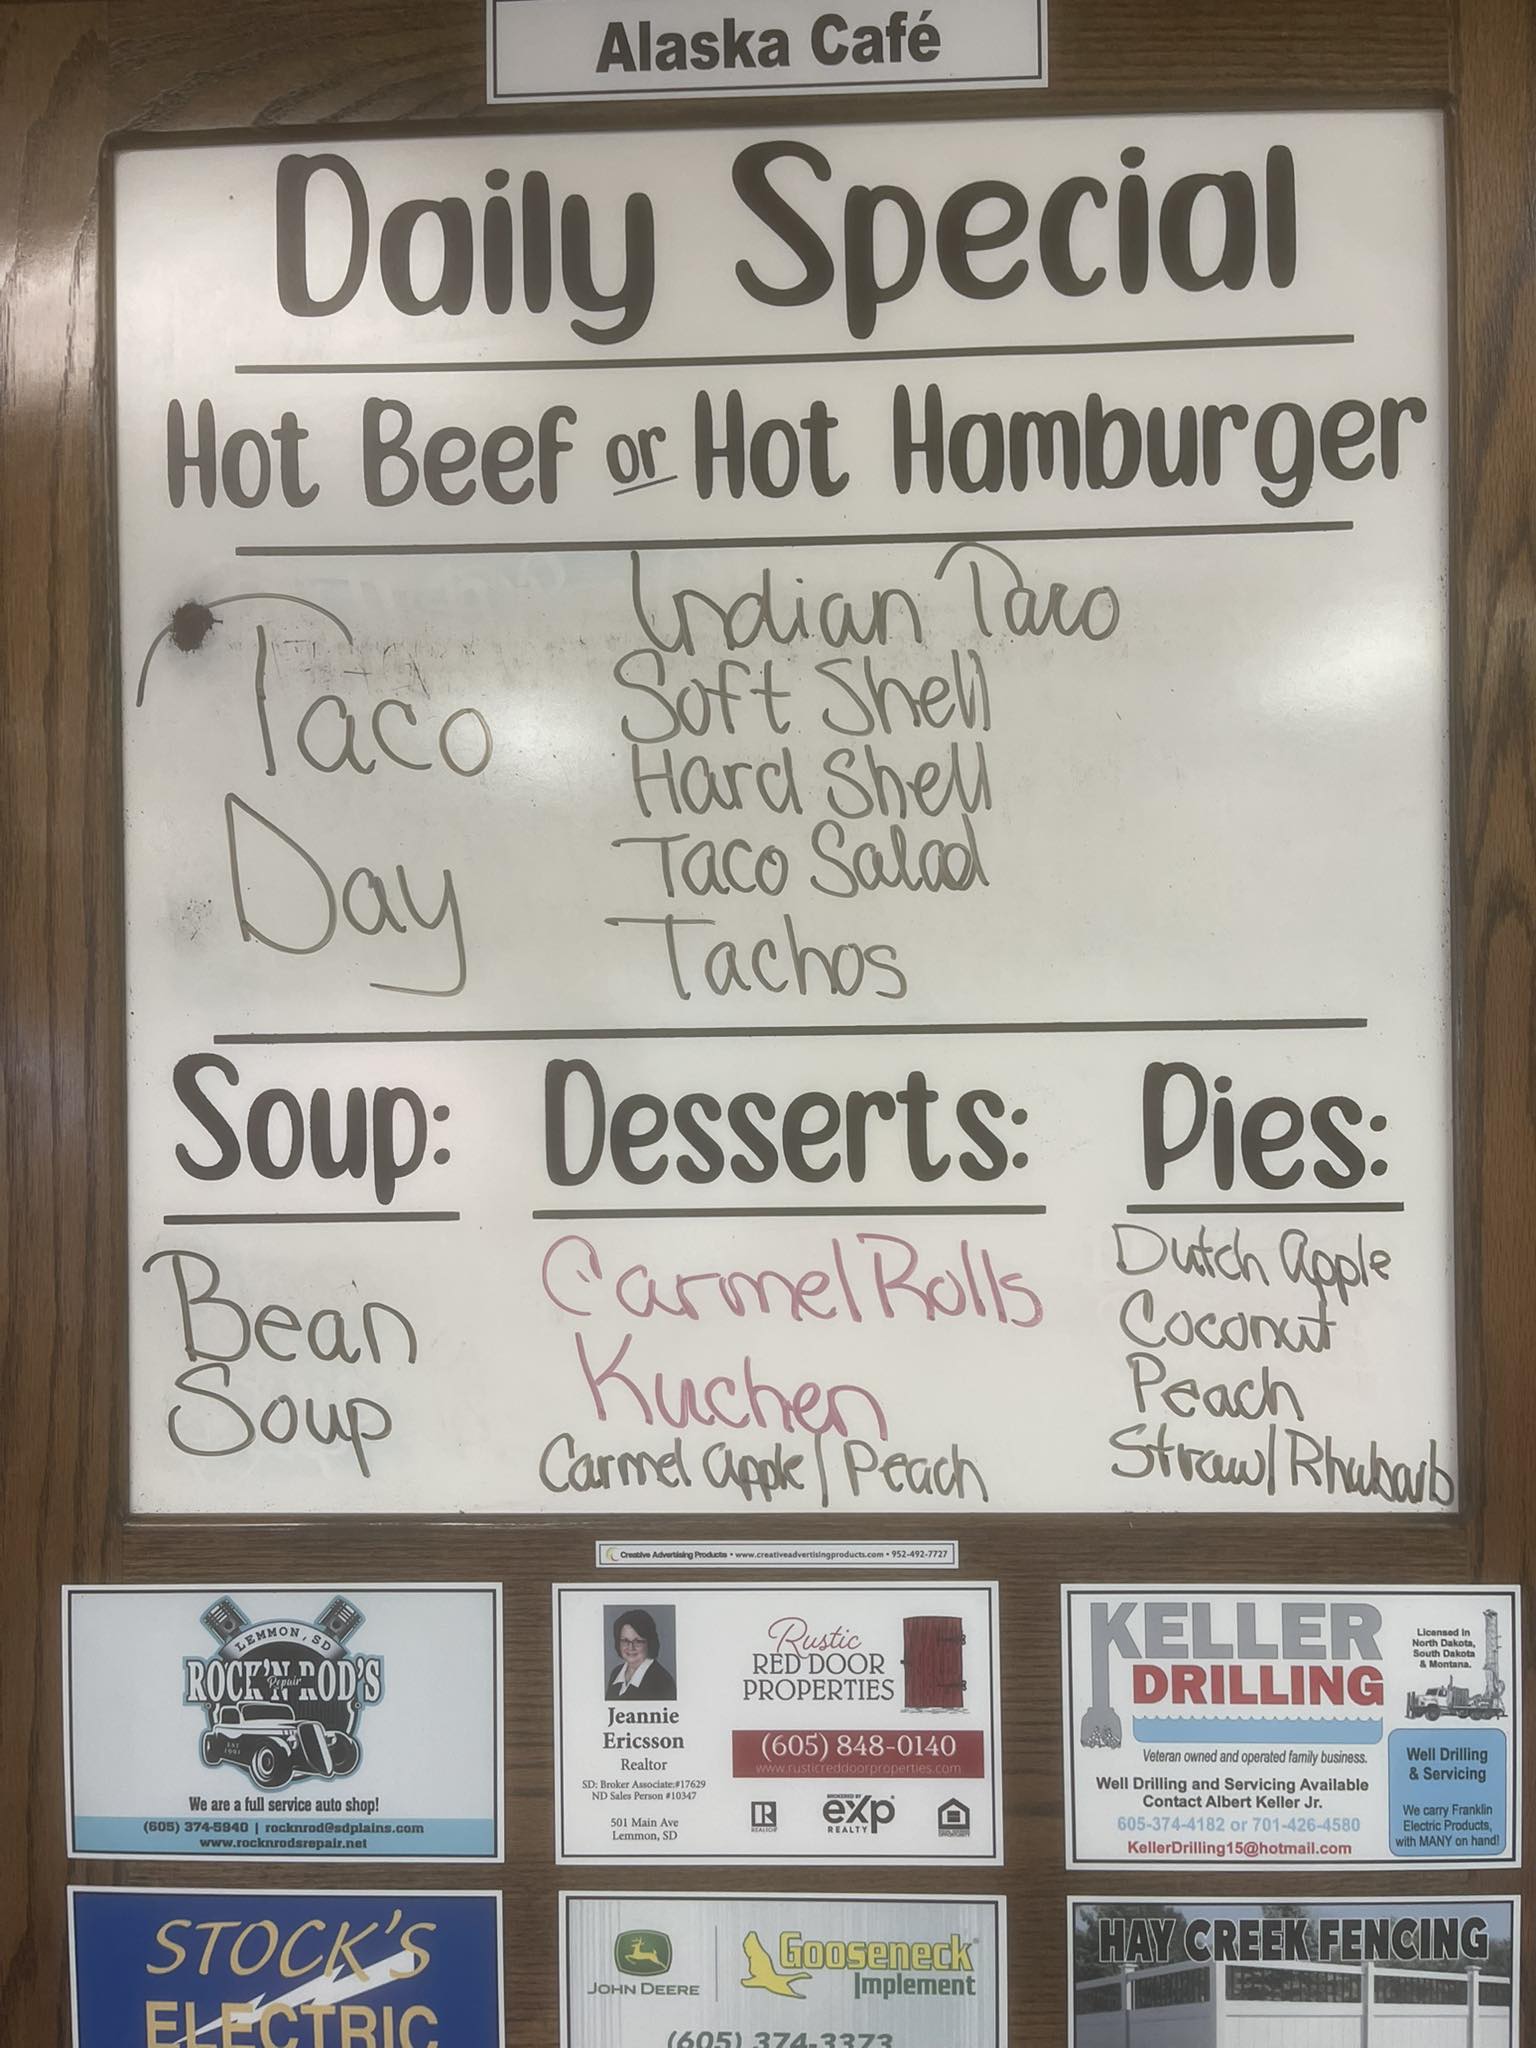 Alaska Café
Daily Special
Hot Beef or Hot Hamburger
Taco
Day
Indian Taco
Soft Shell
Hard Shell
Taco Salad
Tachos
Soup:
Bean
Soup
Desserts:
Carmel Rolls
Kuchen
Carmel Apple / Peach
Pies:
Dutch Apple
Coconut
Peach
Straw/Rhubarb
Creative Advertising Products • www.creativeadvertisingproducts.com • 952-492-7727
LEMMON, SD
ROCK'N ROD'S
Repair
EST
1991
We are a full service auto shop!
(605) 374-5940 | rocknrod@sdplains.com
www.rocknrodsrepair.net
Jeannie
Ericsson
Realtor
SD: Broker Associate:#17629
ND Sales Person #10347
501 Main Ave
Lemmon, SD
Rustic
RED DOOR
PROPERTIES
(605) 848-0140
www.rusticreddoorproperties.com
REALTOR
BROKERED BY
eXp
REALTY
EQUAL HOUSING
OPPORTUNITY
KELLER
DRILLING
Licensed in
North Dakota,
South Dakota
& Montana.
Veteran owned and operated family business.
Well Drilling and Servicing Available
Contact Albert Keller Jr.
605-374-4182 or 701-426-4580
KellerDrilling15@hotmail.com
Well Drilling
& Servicing
We carry Franklin
Electric Products,
with MANY on hand!
STOCK'S
ELECTRIC
JOHN DEERE
Gooseneck
Implement
(605) 374-3373
HAY CREEK FENCING